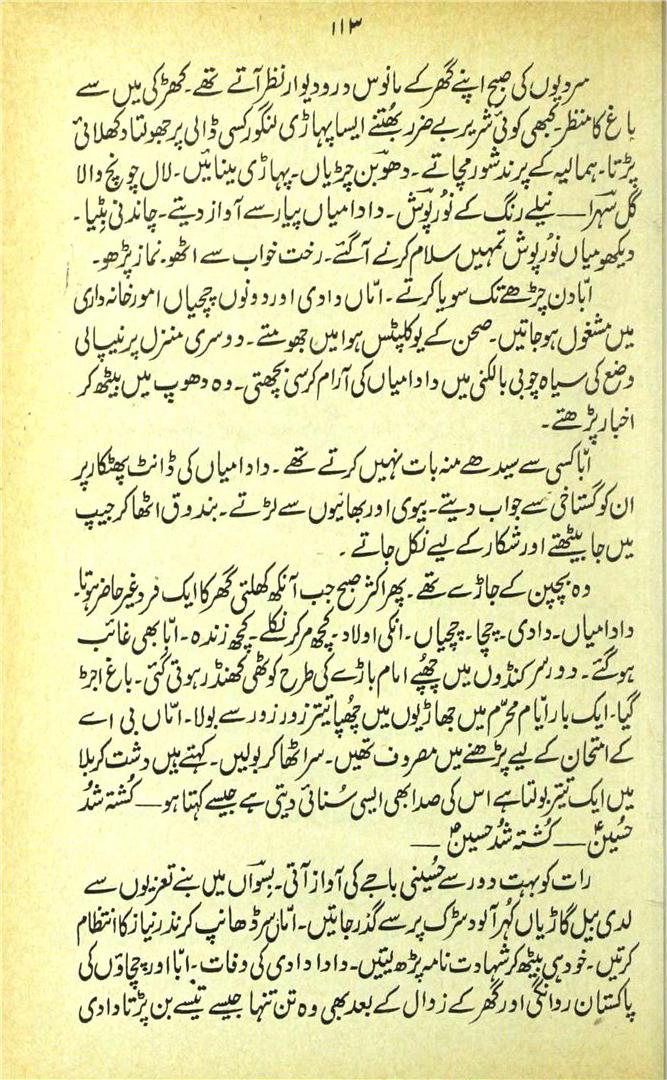 ۱۱۳
سردیوں کی صبح اپنے گھر کے مانوس در و دیوار نظر آتے تھے۔ کھڑکی میں سے
باغ کا منظر۔ کبھی کوئی شریر بے ضرر بھُتنے ایسا پہاڑی لنگور کسی ڈالی پر جھولتا دکھلائی
پڑتا۔ ہمالیہ کے پرند شور مچاتے۔ دھوبن چڑیاں۔ پہاڑی مینائیں۔ لال چونچ والا
گل سَہرا — نیلے رنگ کے نُور پوش۔ دادا میاں پیار سے آواز دیتے۔ چاندنی بِٹیا۔
دیکھو میاں نُور پوش تمہیں سلام کرنے آ گئے۔ رخت خواب سے اٹھو۔ نماز پڑھو۔
ابّا دن چڑھے تک سویا کرتے۔ امّاں دادی اور دونوں چچیاں امور خانہ داری
میں مشغول ہو جاتیں۔ صحن کے یوکلپٹس ہوا میں جھومتے۔ دوسری منزل پر نیپالی
وضع کی سیاہ چوبی بالکنی میں دادا میاں کی آرام کرسی بچھتی۔ وہ دھوپ میں بیٹھ کر
اخبار پڑھتے۔
ابّا کسی سے سیدھے منہ بات نہیں کرتے تھے۔ دادا میاں کی ڈانٹ پھٹکار پر
ان کو گستاخی سے جواب دیتے۔ بیوی اور بھائیوں سے لڑتے۔ بندوق اٹھا کر جیپ
میں جا بیٹھتے اور شکار کے لیے نکل جاتے۔
وہ بچپن کے جاڑے تھے۔ پھر اکثر صبح جب آنکھ کھلتی گھر کا ایک فرد غیر حاضر ہوتا۔
دادا میاں۔ دادی۔ چچا۔ چچیاں۔ انکی اولاد۔ کچھ مر کر نکلے۔ کچھ زندہ۔ ابّا بھی غائب
ہو گئے۔ دور سرکنڈوں میں چھُپے امام باڑے کی طرح کوٹھی کھنڈر ہوتی گئی۔ باغ اجڑ
گیا۔ ایک بار ایّام محرّم میں جھاڑیوں میں چھُپا تیتر زور زور سے بولا۔ امّاں بی اے
کے امتحان کے لیے پڑھنے میں مصروف تھیں۔ سر اٹھا کر بولیں۔ کہتے ہیں دشت کربلا
میں ایک تیتر بولتا ہے اس کی صدا بھی ایسی سُنائی دیتی ہے جیسے کہتا ہو — کُشتہ شُد
حُسینؑ — کُشتہ شُد حسینؑ —
رات کو بہت دور سے حُسینی باجے کی آواز آتی۔ بسواں میں بنے تعزیوں سے
لدی بیل گاڑیاں کُہر آلود سڑک پر سے گذر جاتیں۔ امّاں سر ڈھانپ کر نذر نیاز کا انتظام
کرتیں۔ خود ہی بیٹھ کر شہادت نامہ پڑھ لیتیں۔ دادا دادی کی وفات۔ ابّا اور چچاؤں کی
پاکستان روانگی اور گھر کے زوال کے بعد بھی وہ تن تنہا جیسے تیسے بن پڑتا دادی